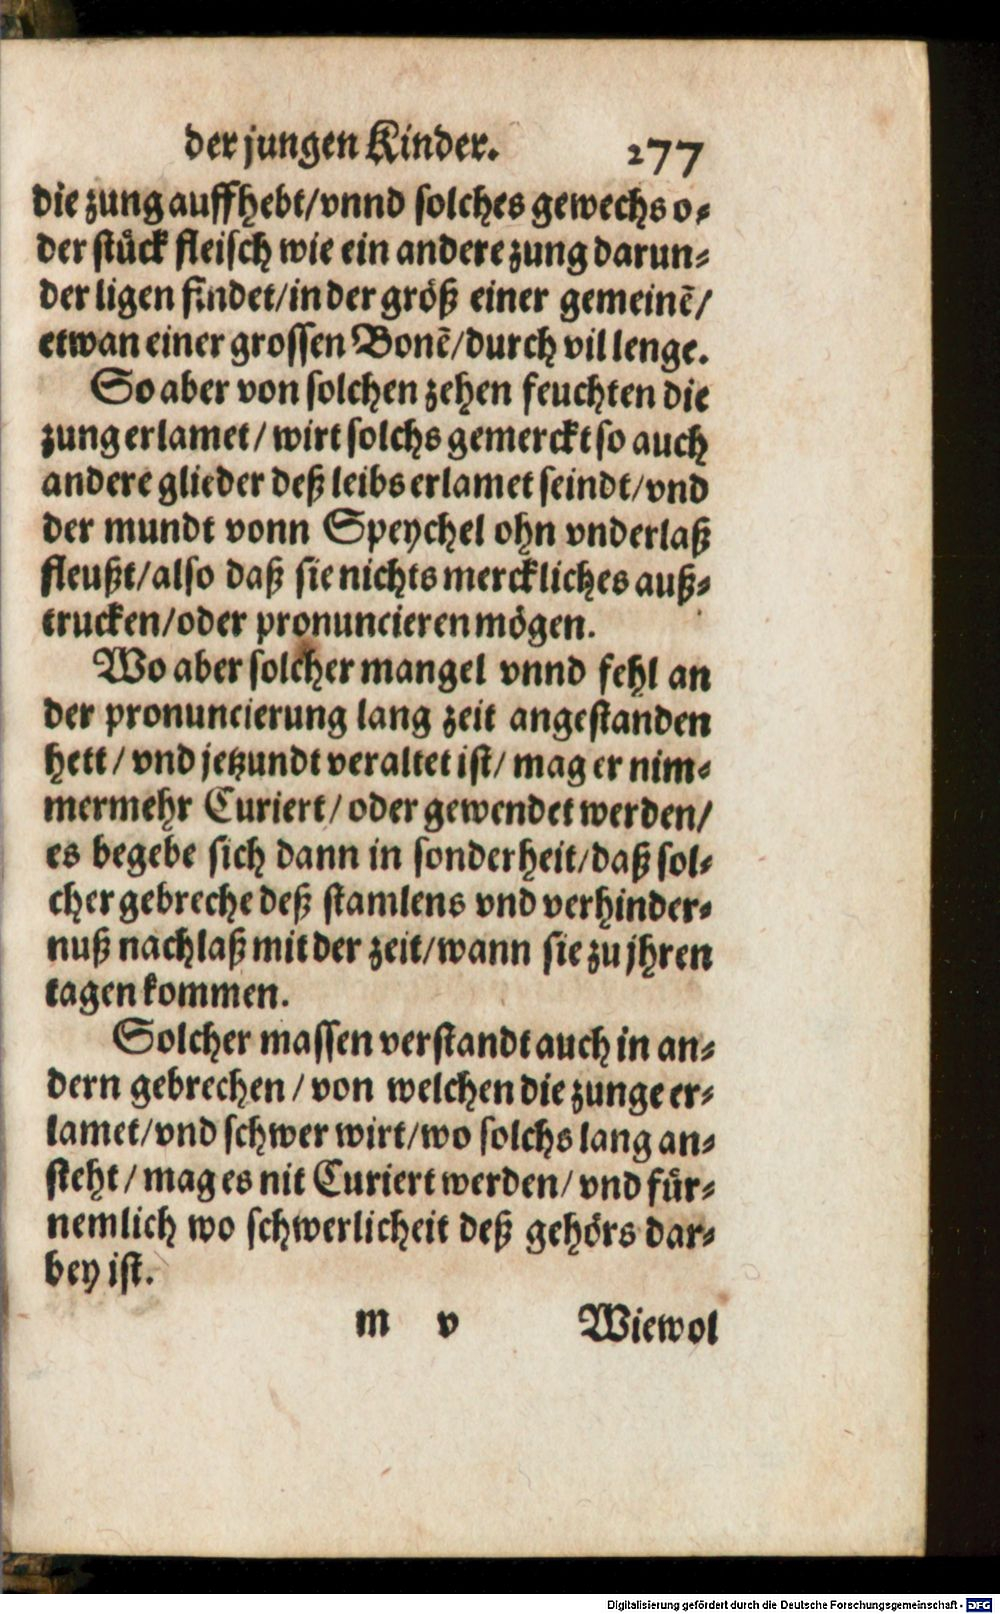 der jungen Kinder. 277
die zung auffhebt/vnnd solches gewechs o⸗
der stück fleisch wie ein andere zung darun⸗
der ligen findet/in der größ einer gemeinē/
etwan einer grossen Bonē/durch vil lenge.
So aber von solchen zehen feuchten die
zung erlamet/wirt solchs gemerckt so auch
andere glieder deß leibs erlamet seindt/vnd
der mundt vonn Speychel ohn vnderlaß
fleußt/also daß sie nichts merckliches auß⸗
trucken/oder pronuncieren mögen.
Wo aber solcher mangel vnnd fehl an
der pronuncierung lang zeit angestanden
hett/vnd jetzundt veraltet ist/mag er nim⸗
mermehr Curiert/oder gewendet werden/
es begebe sich dann in sonderheit/daß sol⸗
cher gebreche deß stamlens vnd verhinder⸗
nuß nachlaß mit der zeit/wann sie zu jhren
tagen kommen.
Solcher massen verstandt auch in an⸗
dern gebrechen/von welchen die zunge er⸗
lamet/vnd schwer wirt/wo solchs lang an⸗
steht/mag es nit Curiert werden/vnd für⸗
nemlich wo schwerlicheit deß gehörs dar⸗
bey ist.
m v Wiewol
Digitalisierung gefördert durch die Deutsche Forschungsgemeinschaft - DFG